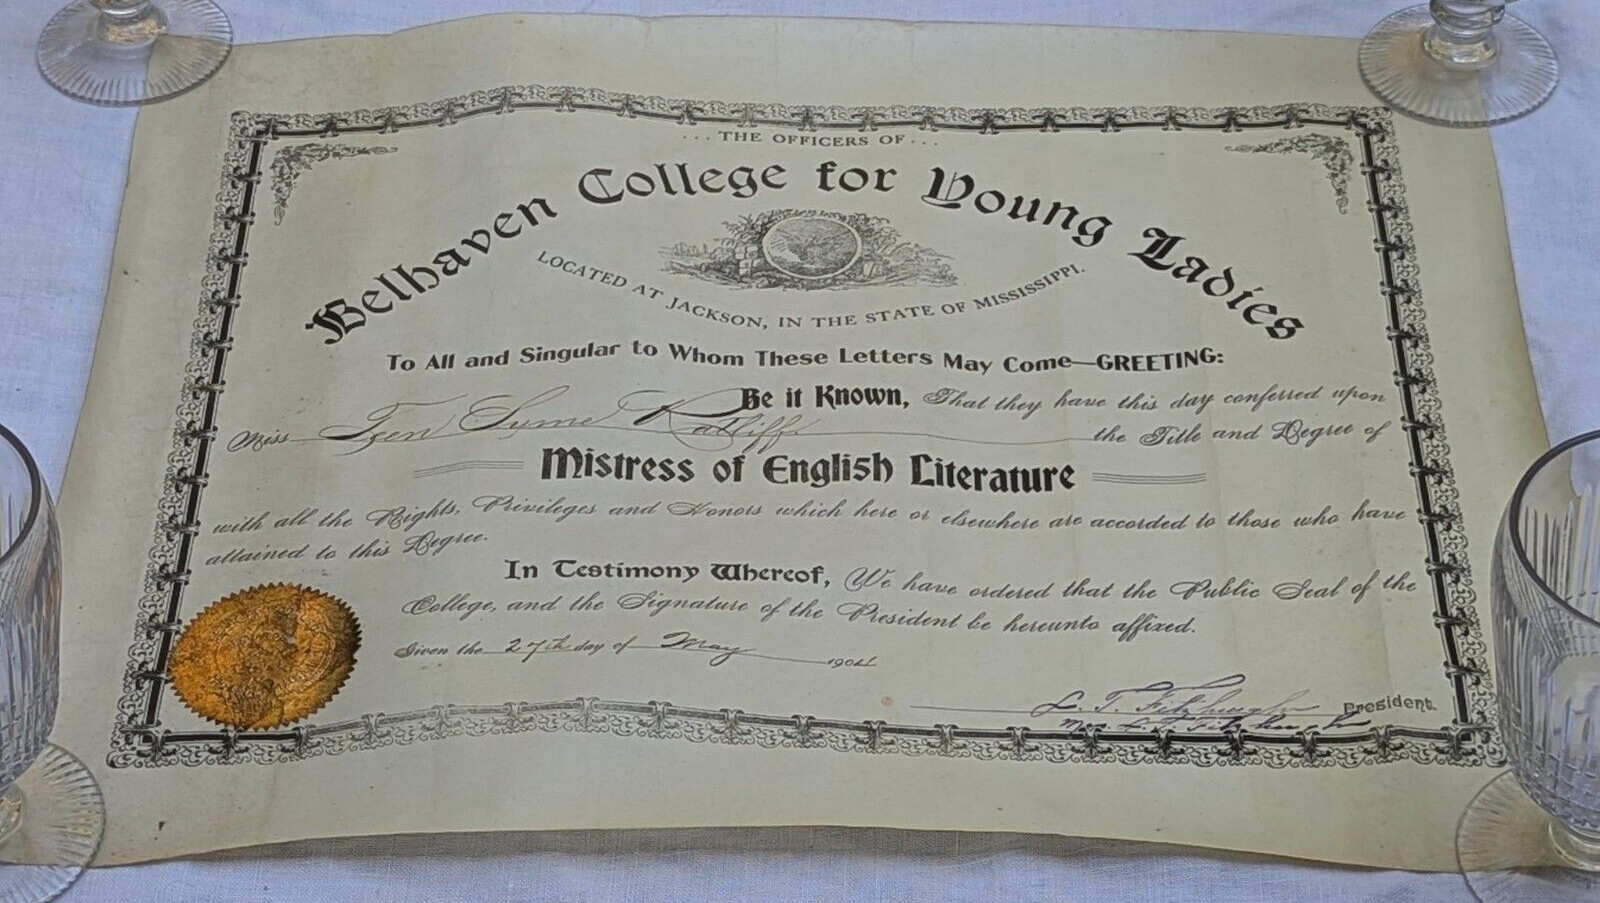 ...THE OFFICERS OF...
Belhaven College for Young Ladies
LOCATED AT JACKSON, IN THE STATE OF MISSISSIPPI.
To All and Singular to Whom These Letters May Come—GREETING:
Be it Known, That they have this day conferred upon
Miss Syme Ratliff the Title and Degree of
Mistress of English Literature
with all the Rights, Privileges and Honors which here or elsewhere are accorded to those who have
attained to this Degree.
In Testimony Whereof, We have ordered that the Public Seal of the
College, and the Signature of the President be hereunto affixed.
Given the 27th day of May 1904
L. T. Fitzhugh President.
Mrs. L. T. Fitzhugh